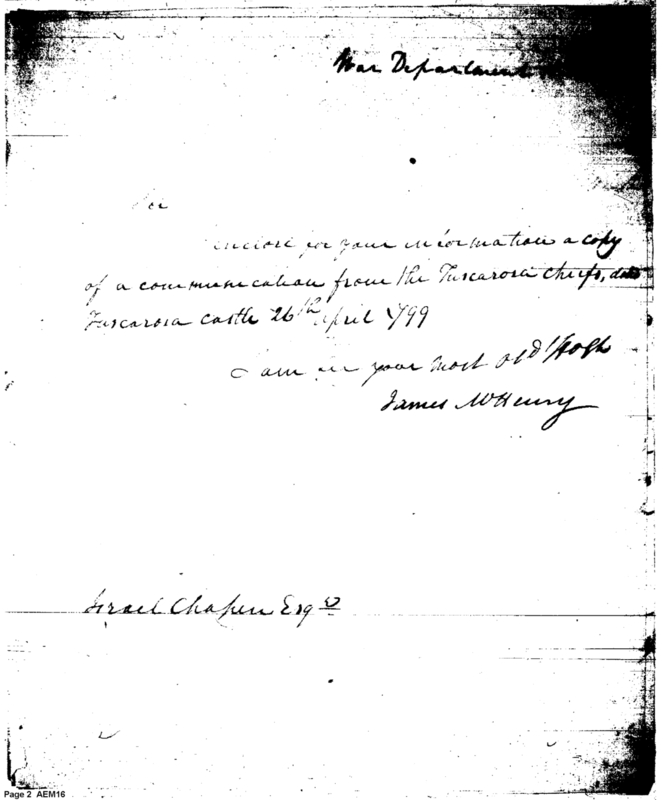 War Department
Sir
enclose for your information a copy
of a communication from the Tuscarora chiefs,
Tuscarora castle 26th April 1799
I am sir your most
James McHenry
Israel Chapin Esqr
Page 2 AEM16